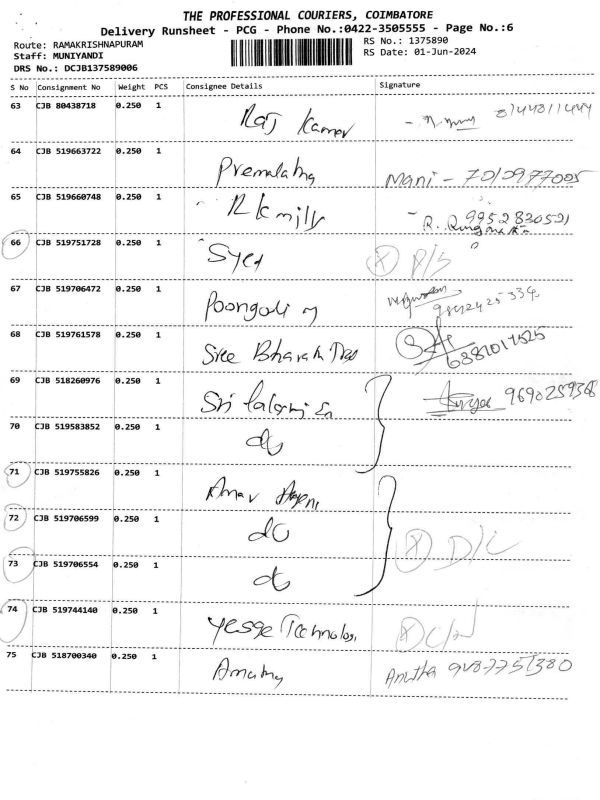 THE PROFESSIONAL COURIERS, COIMBATORE
Delivery Runsheet - PCG - Phone No.:0422-3505555 - Page No.:6
Route: RAMAKRISHNAPURAM
RS No.: 1375890
Staff: MUNIYANDI
RS Date: 01-Jun-2024
DRS No.: DCJB137589006
S No Consignment No Weight PCS Consignee Details Signature
63 CJB 80438718 0.250 1 Raj Kumar
64 CJB 519663722 0.250 1 Premalatha Mani -
65 CJB 519660748 0.250 1 R. 9952830521
66 CJB 519751728 0.250 1 Syed
67 CJB 519706472 0.250 1 Poongodi M
68 CJB 519761578 0.250 1 Sree Bharath
69 CJB 518260976 0.250 1 Sri 9690259368
70 CJB 519583852 0.250 1 do
71 CJB 519755826 0.250 1 Amar
72 CJB 519706599 0.250 1 do D/C
73 CJB 519706554 0.250 1 do
74 CJB 519744140 0.250 1
75 CJB 518700340 0.250 1 Anitha